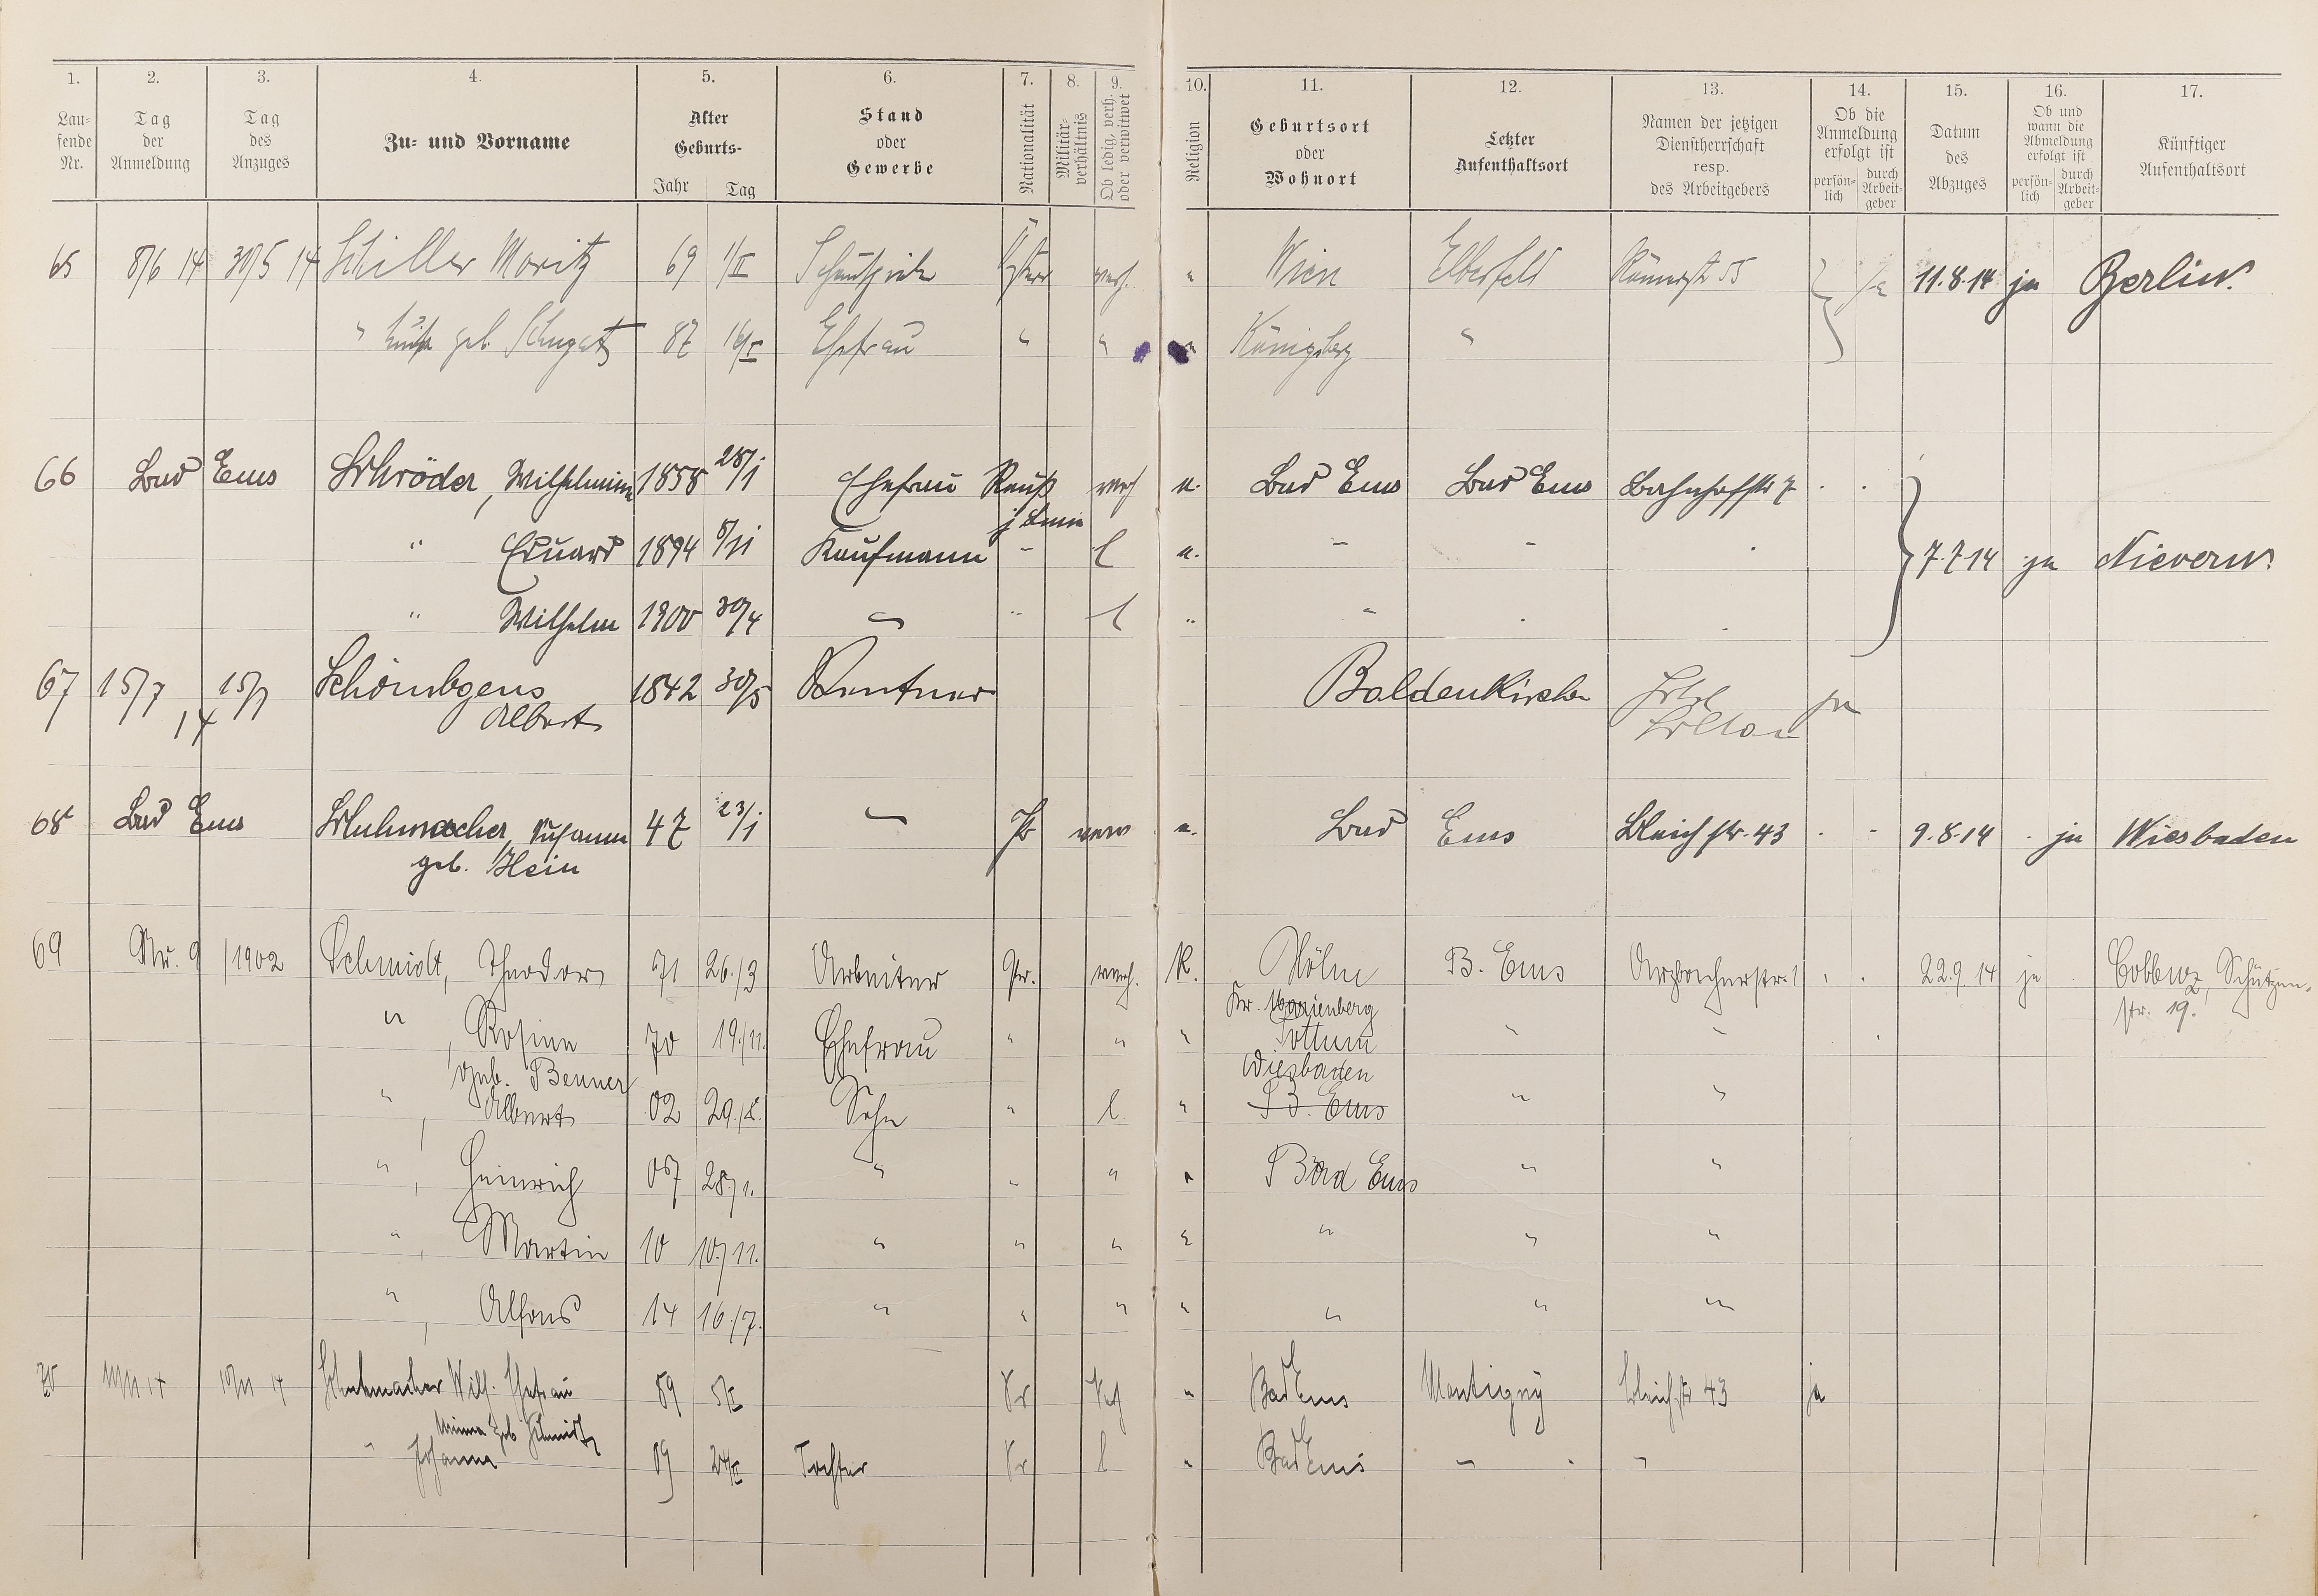 1. 2. 3. 4. 5. 6. 7. 8. 9. 10. 11. 12. 13. 14. 15. 16. 17.
Lau-
fende
Nr.
Tag
der
Anmeldung
Tag
des
Anzuges
Zu- und Vorname
Alter
Geburts-
Jahr Tag
Stand
oder
Gewerbe
Nationalität
Militär-
verhältnis
Ob ledig, verh.
oder verwitwet
Religion
Geburtsort
oder
Wohnort
Letzter
Aufenthaltsort
Namen der jetzigen
Dienstherrschaft
resp.
des Arbeitgebers
Ob die
Anmeldung
erfolgt ist
persön-
lich
durch
Arbeit-
geber
Datum
des
Abzuges
Ob und
wann die
Abmeldung
erfolgt ist
persön-
lich
durch
Arbeit-
geber
Künftiger
Aufenthaltsort
65 8/6 14 30/5 14 Schiller Moritz 69 1/II verh. " Wien Elberfeld Römerstr 55 ja 11.8.14 ja Berlin.
" geb. 87 16/I Ehefrau " " " Königsberg "
66 Bad Ems Schröder, Wilhelmine 1858 28/1 Ehefrau verh e. Bad Ems Bad Ems Bahnhofstr 7 . .
" Eduard 1894 8/11 Kaufmann - l e. - - . 7.7.14 ja Nievern.
" Wilhelm 1900 30/4 - " l " " . .
67 15/7 14 15/7 Schönbgens 1842 30/5 Rentner Boldenkirchen ja
Albert
68 Bad Ems Schuhmacher, Susanne 47 23/1 - Pr verw e. Bad Ems Bleichstr. 43 . - 9.8.14 . ja Wiesbaden
geb. Hein
69 Nr. 9 /1902 Schmidt, Theodor 71 26./3 Arbeiter Pr. verh. K. Höhn B. Ems Arzbacherstr. 1 . . 22.9.14 ja . Coblenz, Schützen-
Kr. Marienberg str. 19.
" , Rosina 70 19./11. Ehefrau " " " Pottum " "
geb. Benner Wiesbaden
" , Albert 02 29./8. Sohn " l. " B. Ems " "
" , Heinrich 07 28./1. " " " " Bad Ems " "
" , Martin 10 10./11. " " " " " " "
" , Alfons 14 16./7. " " " " " " "
70 10/11 14 10/11 14 Schuhmacher Wilh. Ehefrau 89 5/II Pr Verh " Bad Ems Montigny Bleichstr 43 ja
Minna geb Schmidt
" Johanna 09 Tochter Pr l " Bad Ems " . "